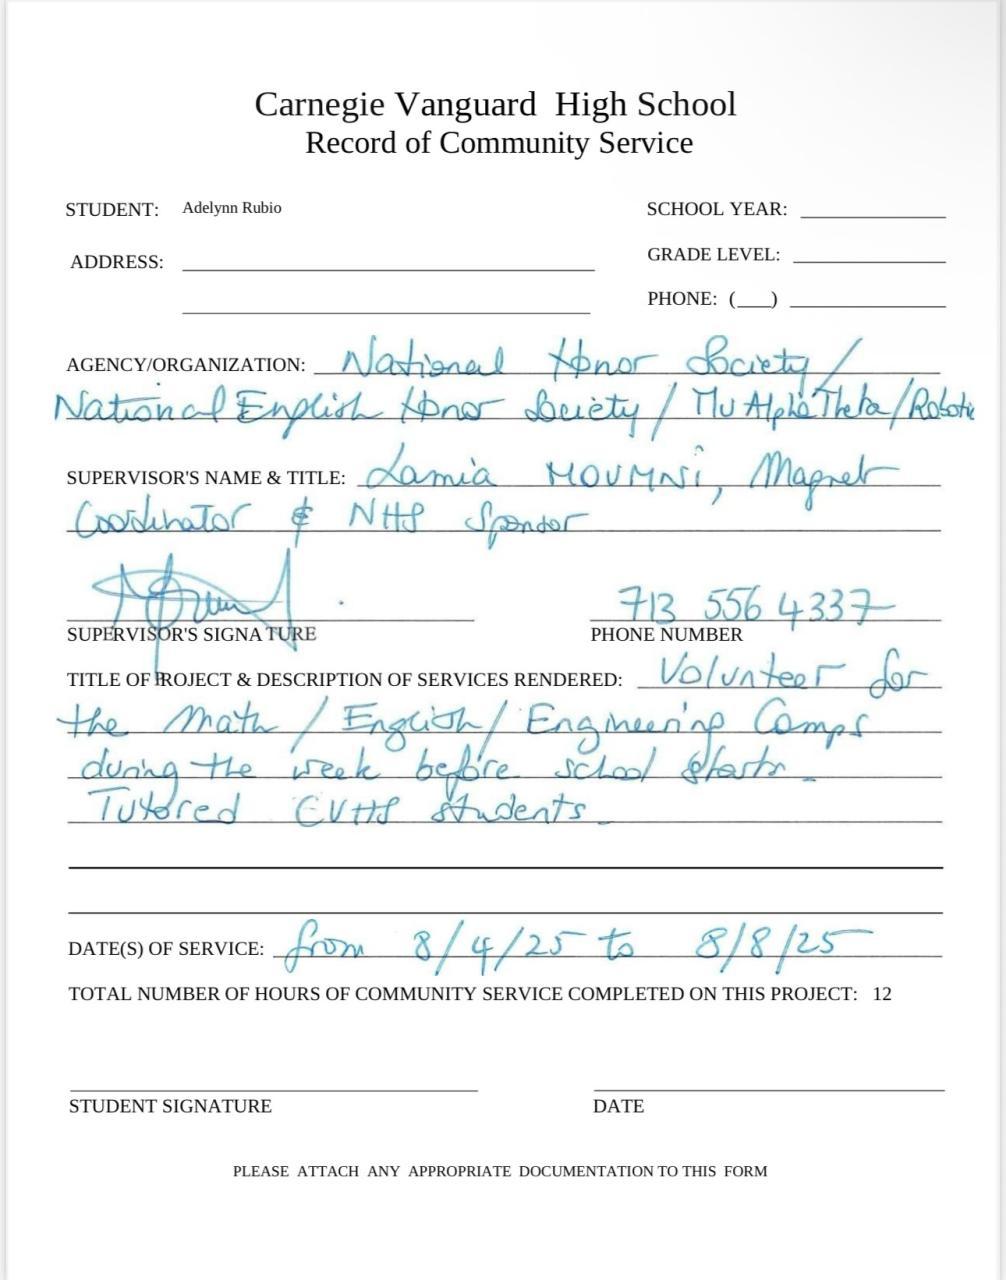 Carnegie Vanguard High School
Record of Community Service
STUDENT: Adelynn Rubio
SCHOOL YEAR:
ADDRESS:
GRADE LEVEL:
PHONE: (   )
AGENCY/ORGANIZATION: National Honor Society/
National English Honor Society / Mu Alpha Theta / Robotic
SUPERVISOR'S NAME & TITLE: Lamia MOUMNi, Magnet
Coordinator & NHS Sponsor
713 556 4337
SUPERVISOR'S SIGNATURE PHONE NUMBER
TITLE OF PROJECT & DESCRIPTION OF SERVICES RENDERED: Volunteer for
the Math / English / Engineering Camps
during the week before school starts.
Tutored CVHS students.
DATE(S) OF SERVICE: from 8/4/25 to 8/8/25
TOTAL NUMBER OF HOURS OF COMMUNITY SERVICE COMPLETED ON THIS PROJECT: 12
STUDENT SIGNATURE DATE
PLEASE ATTACH ANY APPROPRIATE DOCUMENTATION TO THIS FORM